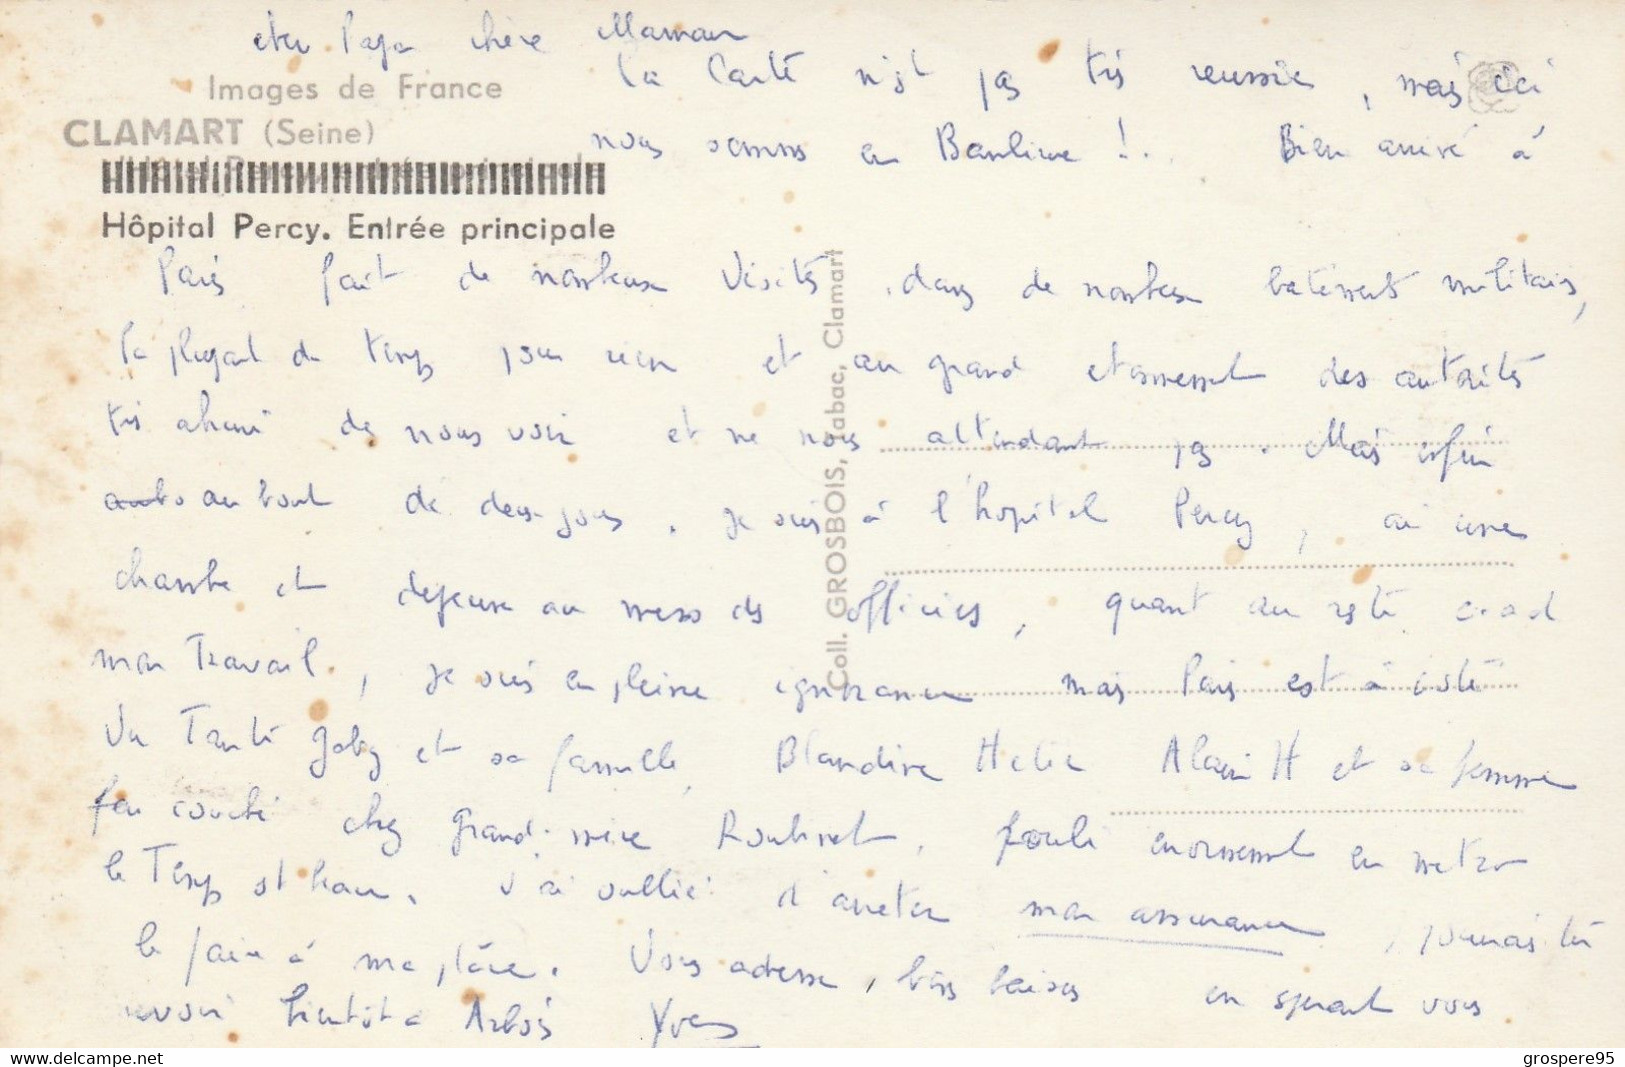 cher Papa chère Maman
Images de France
CLAMART (Seine)
la Carte n'est pas très reussie, mais ici
nous sommes en Banlieue !..  Bien arrivé à
Hôpital Percy. Entrée principale
Paris fait de nombreux visites, dans de nombreux batiments militaires,
la plupart du temps pour rien et au grand etonnement des autorités
très ahuri de nous voir et ne nous attendant pas. Mais enfin
au bout de deux jours, je suis à l'hopital Percy, ai une
chambre et dejeune au mess des officiers, quant au reste
mon Travail, je suis en pleine ignorance mais Paris est à côté
Vu Tante Jaby et sa famille, Blandine Helie Alain H et sa femme
couché chez Grand-mère Roubinet, enormement en metro
le Temps est beau. J'ai oublié d'arreter mon assurance, pourrais tu
le faire à ma place. Vous adresse, bons baisers en esperant vous
revoir bientôt à Arbois Yves
Coll. GROSBOIS, Tabac, Clamart
grospere95